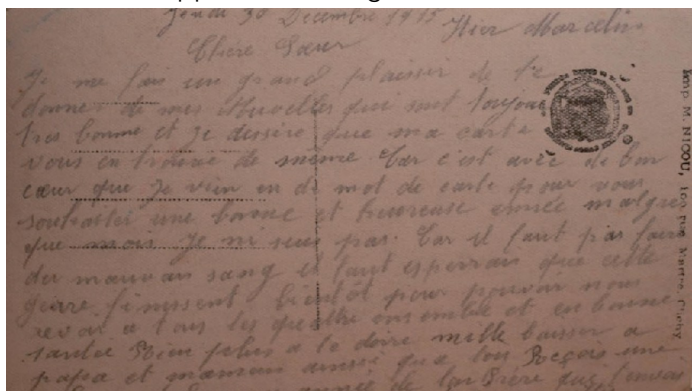 Jeudi 30 Decembre 1915
Hier Marcelin
Chère Sœur
Je me fais un grand plaisir de te
donner de mes Nouvelles que sont toujour
tres bonne et Je dessire que ma carte
vous en trouve de même. Car c'est avec de bon
cœur que Je vien en di mot de carte pour vous
souhaiter une bonne et heureuse année malgre
que mois Je ni suis pas. Car il faut pas faire
du mauvais sang il faut esperrais que cette
gerre finissent bientôt pour pouvoir nous
revoir a tous les quattre ensemble et en bonne
santée Rien plus a te dire mille baisser a
papa et maman ainsi que toi Reçois une
année de ton frère
Imp. M. NICOU, 100 rue Martre, Clichy